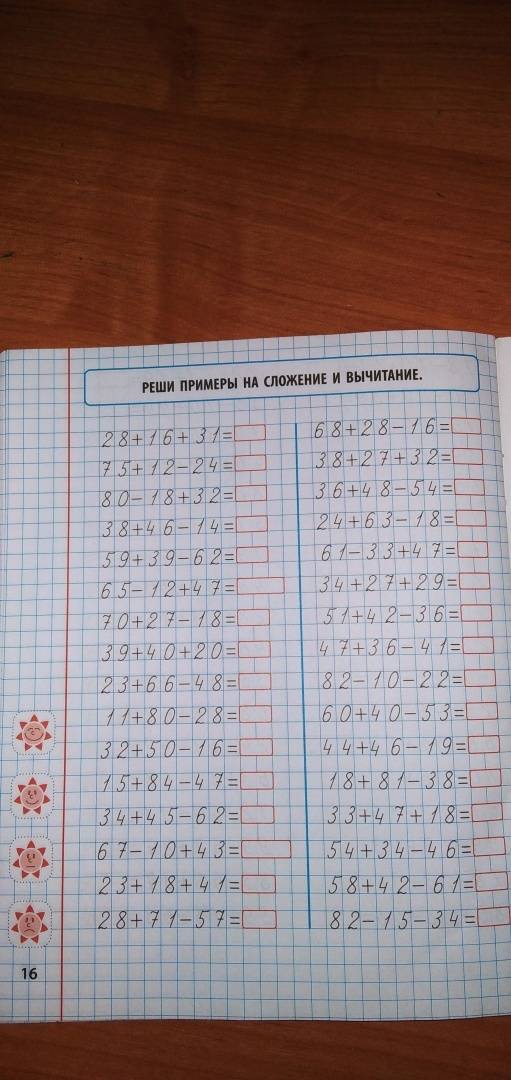 РЕШИ ПРИМЕРЫ НА СЛОЖЕНИЕ И ВЫЧИТАНИЕ.
28+16+31=
75+12-24=
80-18+32=
38+46-14=
59+39-62=
65-12+47=
70+27-18=
39+40+20=
23+66-48=
11+80-28=
32+50-16=
15+84-47=
34+45-62=
67-10+43=
23+18+41=
28+71-57=
68+28-16=
38+27+32=
36+48-54=
24+63-18=
61-33+47=
34+27+29=
51+42-36=
47+36-41=
82-10-22=
60+40-53=
44+46-19=
18+81-38=
33+47+18=
54+34-46=
58+42-61=
82-15-34=
16